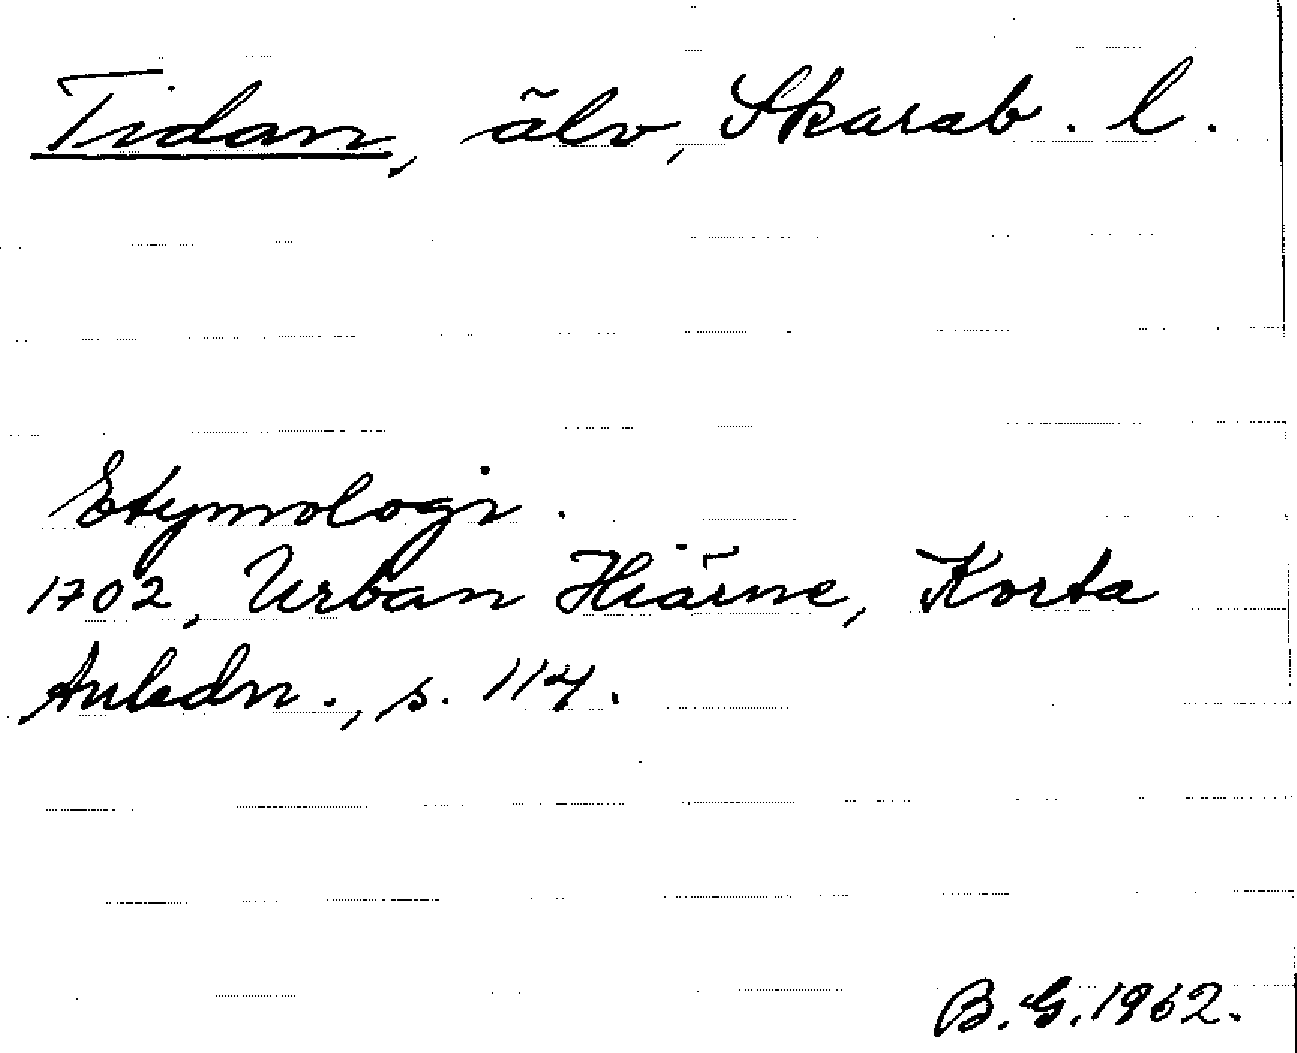 Tidan, älv, Skarab. l.
Etymologi.
1702, Urban Hiärne, Korta
Anledn., s. 114.
B. G. 1962.